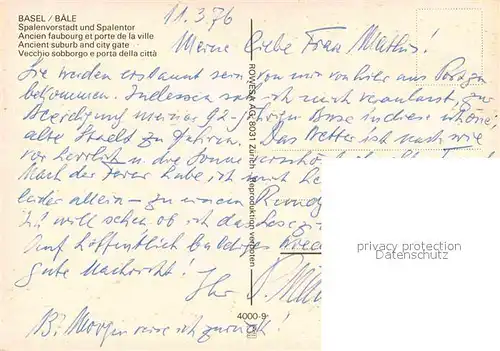 BASEL / BÂLE
Spalenvorstadt und Spalentor
Ancien faubourg et porte de la ville
Ancient suburb and city gate
Vecchio sobborgo e porta della città
11.3.76
Meine liebe Frau Mathis!
Sie werden erstaunt sein, von mir von hier aus Post zu
bekommen. Indessen sah ich mich veranlasst, zur
Beerdigung meiner 92-jährigen Base in diese schöne
alte Stadt zu fahren. Das Wetter ist nach wie
vor herrlich u. die Sonne
Nach der Feier habe ich mich
leider allein – zu einem
will sehen ob ich das
Auf hoffentlich baldiges
gute Nachricht!
Ihr
Bi Morgen reise ich zurück!
ROWESA AG, 8031 Zürich Reproduktion verboten
4000-9
privacy protection
Datenschutz